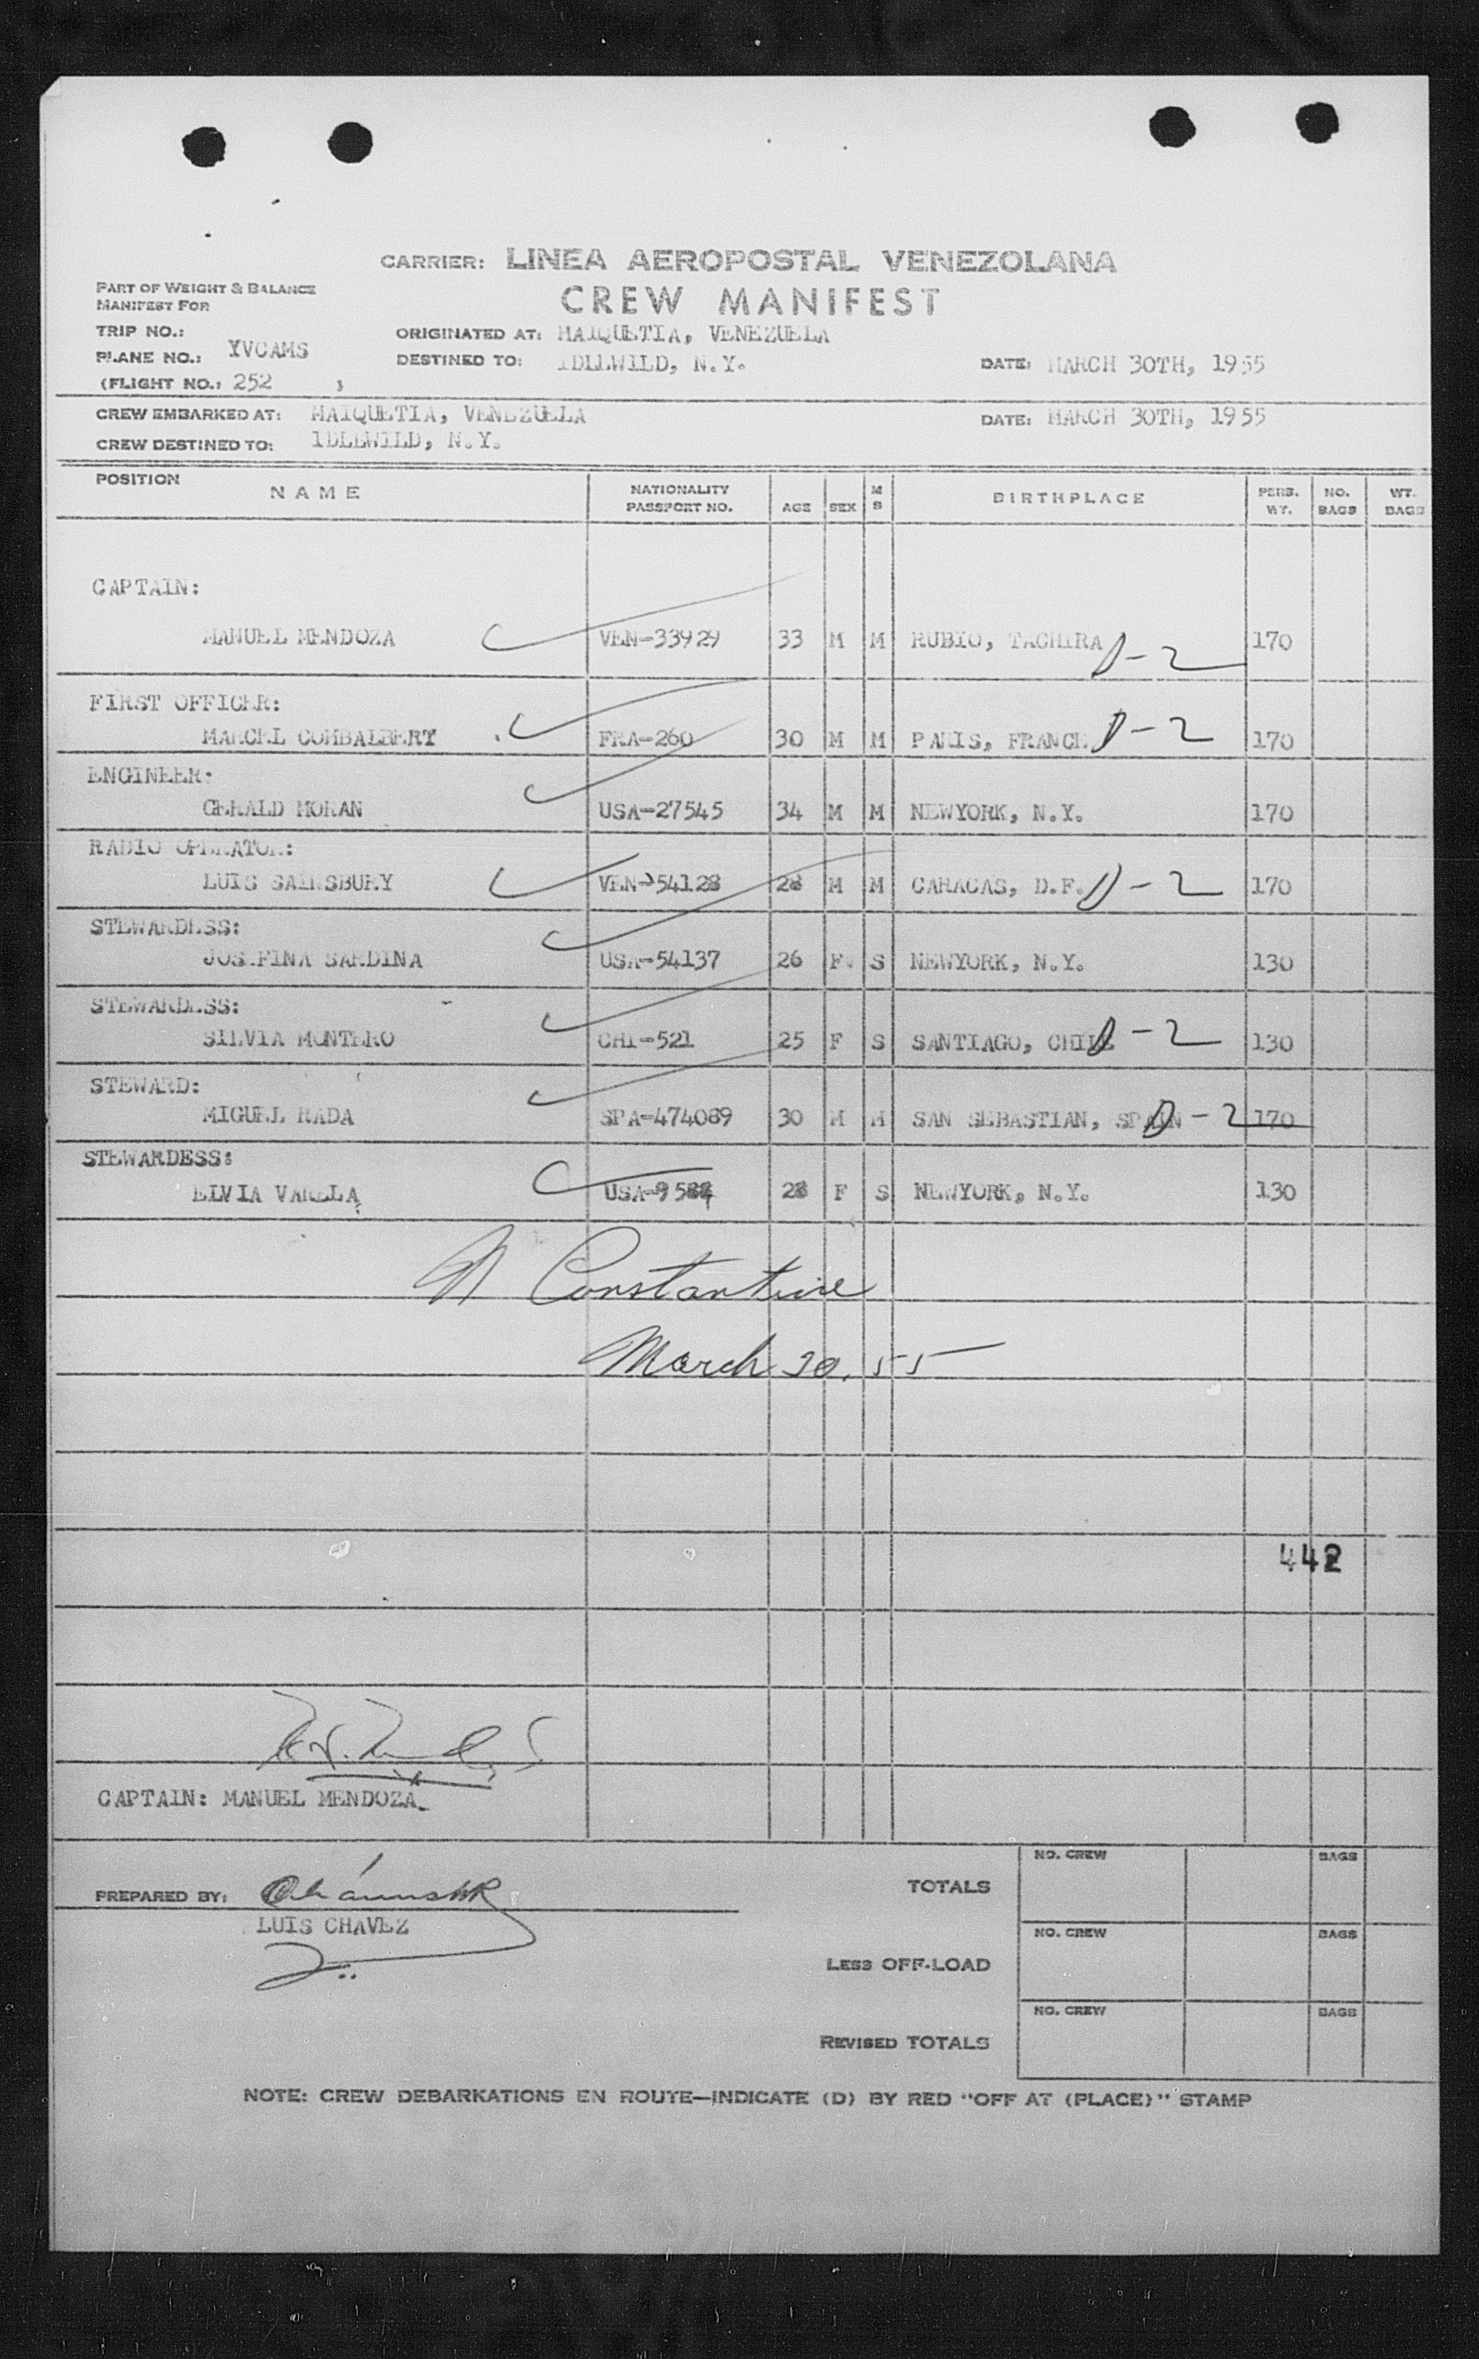 CARRIER: LINEA AEROPOSTAL VENEZOLANA
PART OF WEIGHT & BALANCE
MANIFEST FOR
CREW MANIFEST
TRIP NO.:
ORIGINATED AT: MAIQUETIA, VENEZUELA
PLANE NO.: YVCAMS
DESTINED TO: IDLEWILD, N.Y.
DATE: MARCH 30TH, 1955
(FLIGHT NO.: 252 )
CREW EMBARKED AT: MAIQUETIA, VENEZUELA
DATE: MARCH 30TH, 1955
CREW DESTINED TO: IDLEWILD, N.Y.
POSITION NAME NATIONALITY PASSPORT NO. AGE SEX M S BIRTHPLACE PERS. WT. NO. BAGS WT. BAGS
CAPTAIN:
MANUEL MENDOZA VEN-33929 33 M M RUBIO, TACHIRA D-2 170
FIRST OFFICER:
MARCEL COMBALBERT FRA-260 30 M M PARIS, FRANCE D-2 170
ENGINEER:
GERALD MORAN USA-27545 34 M M NEWYORK, N.Y. 170
RADIO OPERATOR:
LUIS SAINSBURY VEN-54128 28 M M CARACAS, D.F. D-2 170
STEWARDESS:
JOSEFINA SARDINA USA-54137 26 F. S NEWYORK, N.Y. 130
STEWARDESS:
SILVIA MONTERO CHI-521 25 F S SANTIAGO, CHILE D-2 130
STEWARD:
MIGUEL RADA SPA-474089 30 M M SAN SEBASTIAN, SPAIN D-2 170
STEWARDESS:
ELVIA VARELA 28 F S NEWYORK, N.Y. 130
N Constantine
March 30, 55
442
CAPTAIN: MANUEL MENDOZA.
PREPARED BY:
LUIS CHAVEZ
TOTALS NO. CREW BAGS
LESS OFF-LOAD NO. CREW BAGS
REVISED TOTALS NO. CREW BAGS
NOTE: CREW DEBARKATIONS EN ROUTE—INDICATE (D) BY RED "OFF AT (PLACE)" STAMP